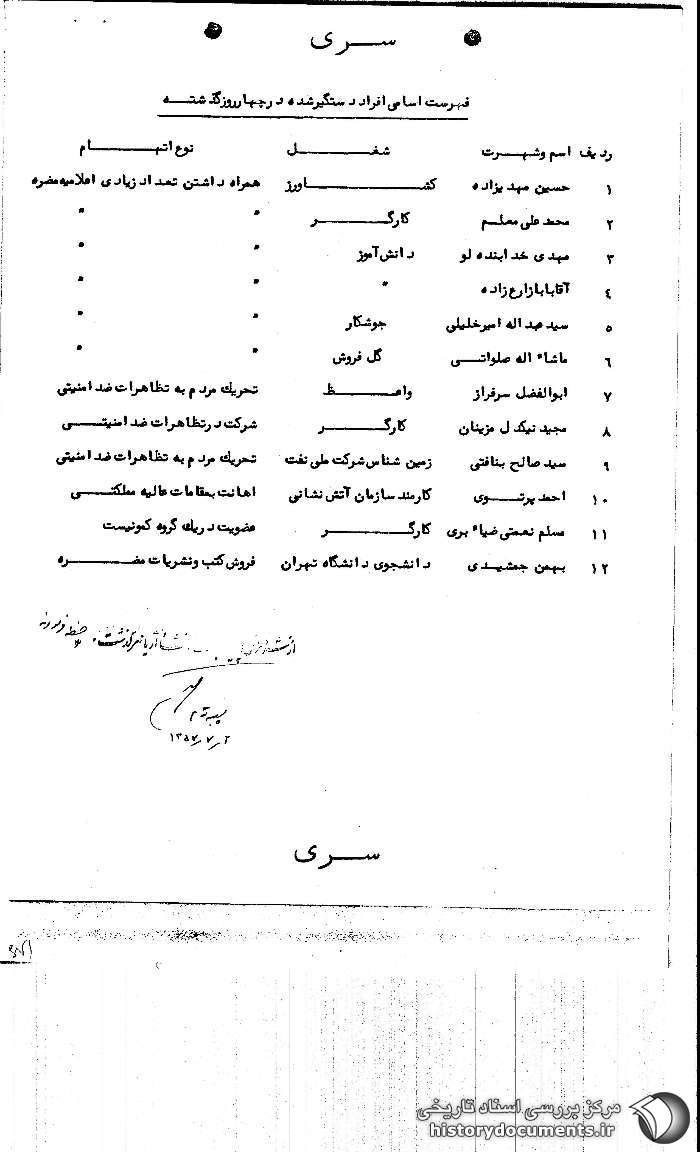 سری
فهرست اسامی افراد دستگیر شده در چهار روز گذشته
ردیف اسم و شهرت شغل نوع اتهام
۱ حسین مهدیزاده کشاورز همراه داشتن تعداد زیادی اعلامیه مضره
۲ محمد علی معلم کارگر " "
۳ مهدی خدابنده لو دانش آموز " "
٤ آقابابا زارع زاده " " "
۵ سید عبداله امیرخلیلی جوشکار " "
٦ ماشاء اله صلواتی گل فروش " "
۷ ابوالفضل سرفراز واعظ تحریک مردم به تظاهرات ضد امنیتی
۸ مجید نیکدل مزینان کارگر شرکت در تظاهرات ضد امنیتی
۹ سید صالح بنافتی زمین شناس شرکت ملی نفت تحریک مردم به تظاهرات ضد امنیتی
۱۰ احمد پرتوی کارمند سازمان آتش نشانی اهانت بمقامات عالیه مملکتی
۱۱ مسلم نعمتی ضیاء بری کارگر عضویت در یک گروه کمونیست
۱۲ بهمن جمشیدی دانشجوی دانشگاه تهران فروش کتب و نشریات مضره
از گذشت
۱۳۵۷
سری
مرکز بررسی اسناد تاریخی
historydocuments.ir